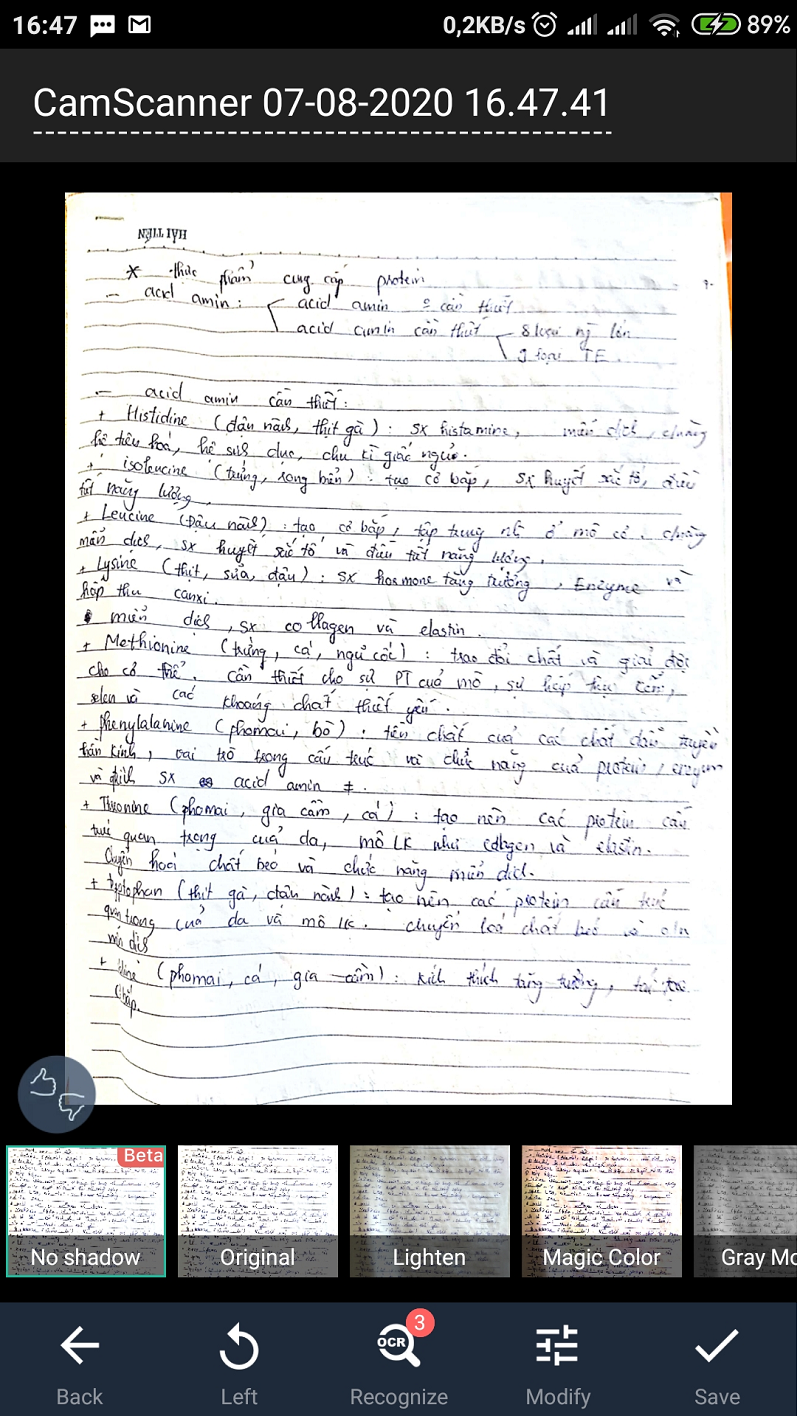 16:47
0,2KB/s
89%
CamScanner 07-08-2020 16.47.41
HẢI TIẾN
* thức phẩm cung cấp protein
- acid amin: acid amin cần thiết
acid amin cần thiết 8 loại ng lớn
9 loại TE.
- acid amin cần thiết:
+ Histidine (đậu nành, thịt gà): sx histamine, miễn dịch, chường
hệ tiêu hoá, hệ sinh dục, chu kì giấc ngủ.
+ isoleucine (trứng, rong biển): tạo cơ bắp, sx huyết sắc tố, điều
tiết năng lượng.
+ Leucine (Đậu nành): tạo cơ bắp, tập trung ở mô cơ.
miễn dịch, sx huyết sắc tố và điều tiết năng lượng.
+ Lysine (thịt, sữa, đậu): sx hormone tăng trưởng, Enzyme và
hấp thu canxi.
miễn dịch, sx collagen và elastin.
+ Methionine (trứng, cá, ngũ cốc): trao đổi chất và giải độc
cho cơ thể. cần thiết cho sự PT của mô, sự hấp thu kẽm,
selen và các khoáng chất thiết yếu.
+ phenylalanine (phomai, bò): tiền chất của các chất dẫn truyền
thần kinh, vai trò trong cấu trúc và chức năng của protein, enzym
và sx acid amin ≠.
+ Threonine (phomai, gia cầm, cá): tạo nên các protein cấu
trúc quan trọng của da, mô LK như collagen và elastin.
chuyển hoá chất béo và chức năng miễn dịch.
+ tryptophan (thịt gà, đậu nành): tạo nên các protein cấu trúc
quan trọng của da và mô LK. chuyển hoá chất béo và c/n
miễn dịch
+ (phomai, cá, gia cầm): kích thích tăng trưởng, tái tạo
Beta
No shadow
Original
Lighten
Magic Color
Gray Mo
3
OCR
Back
Left
Recognize
Modify
Save